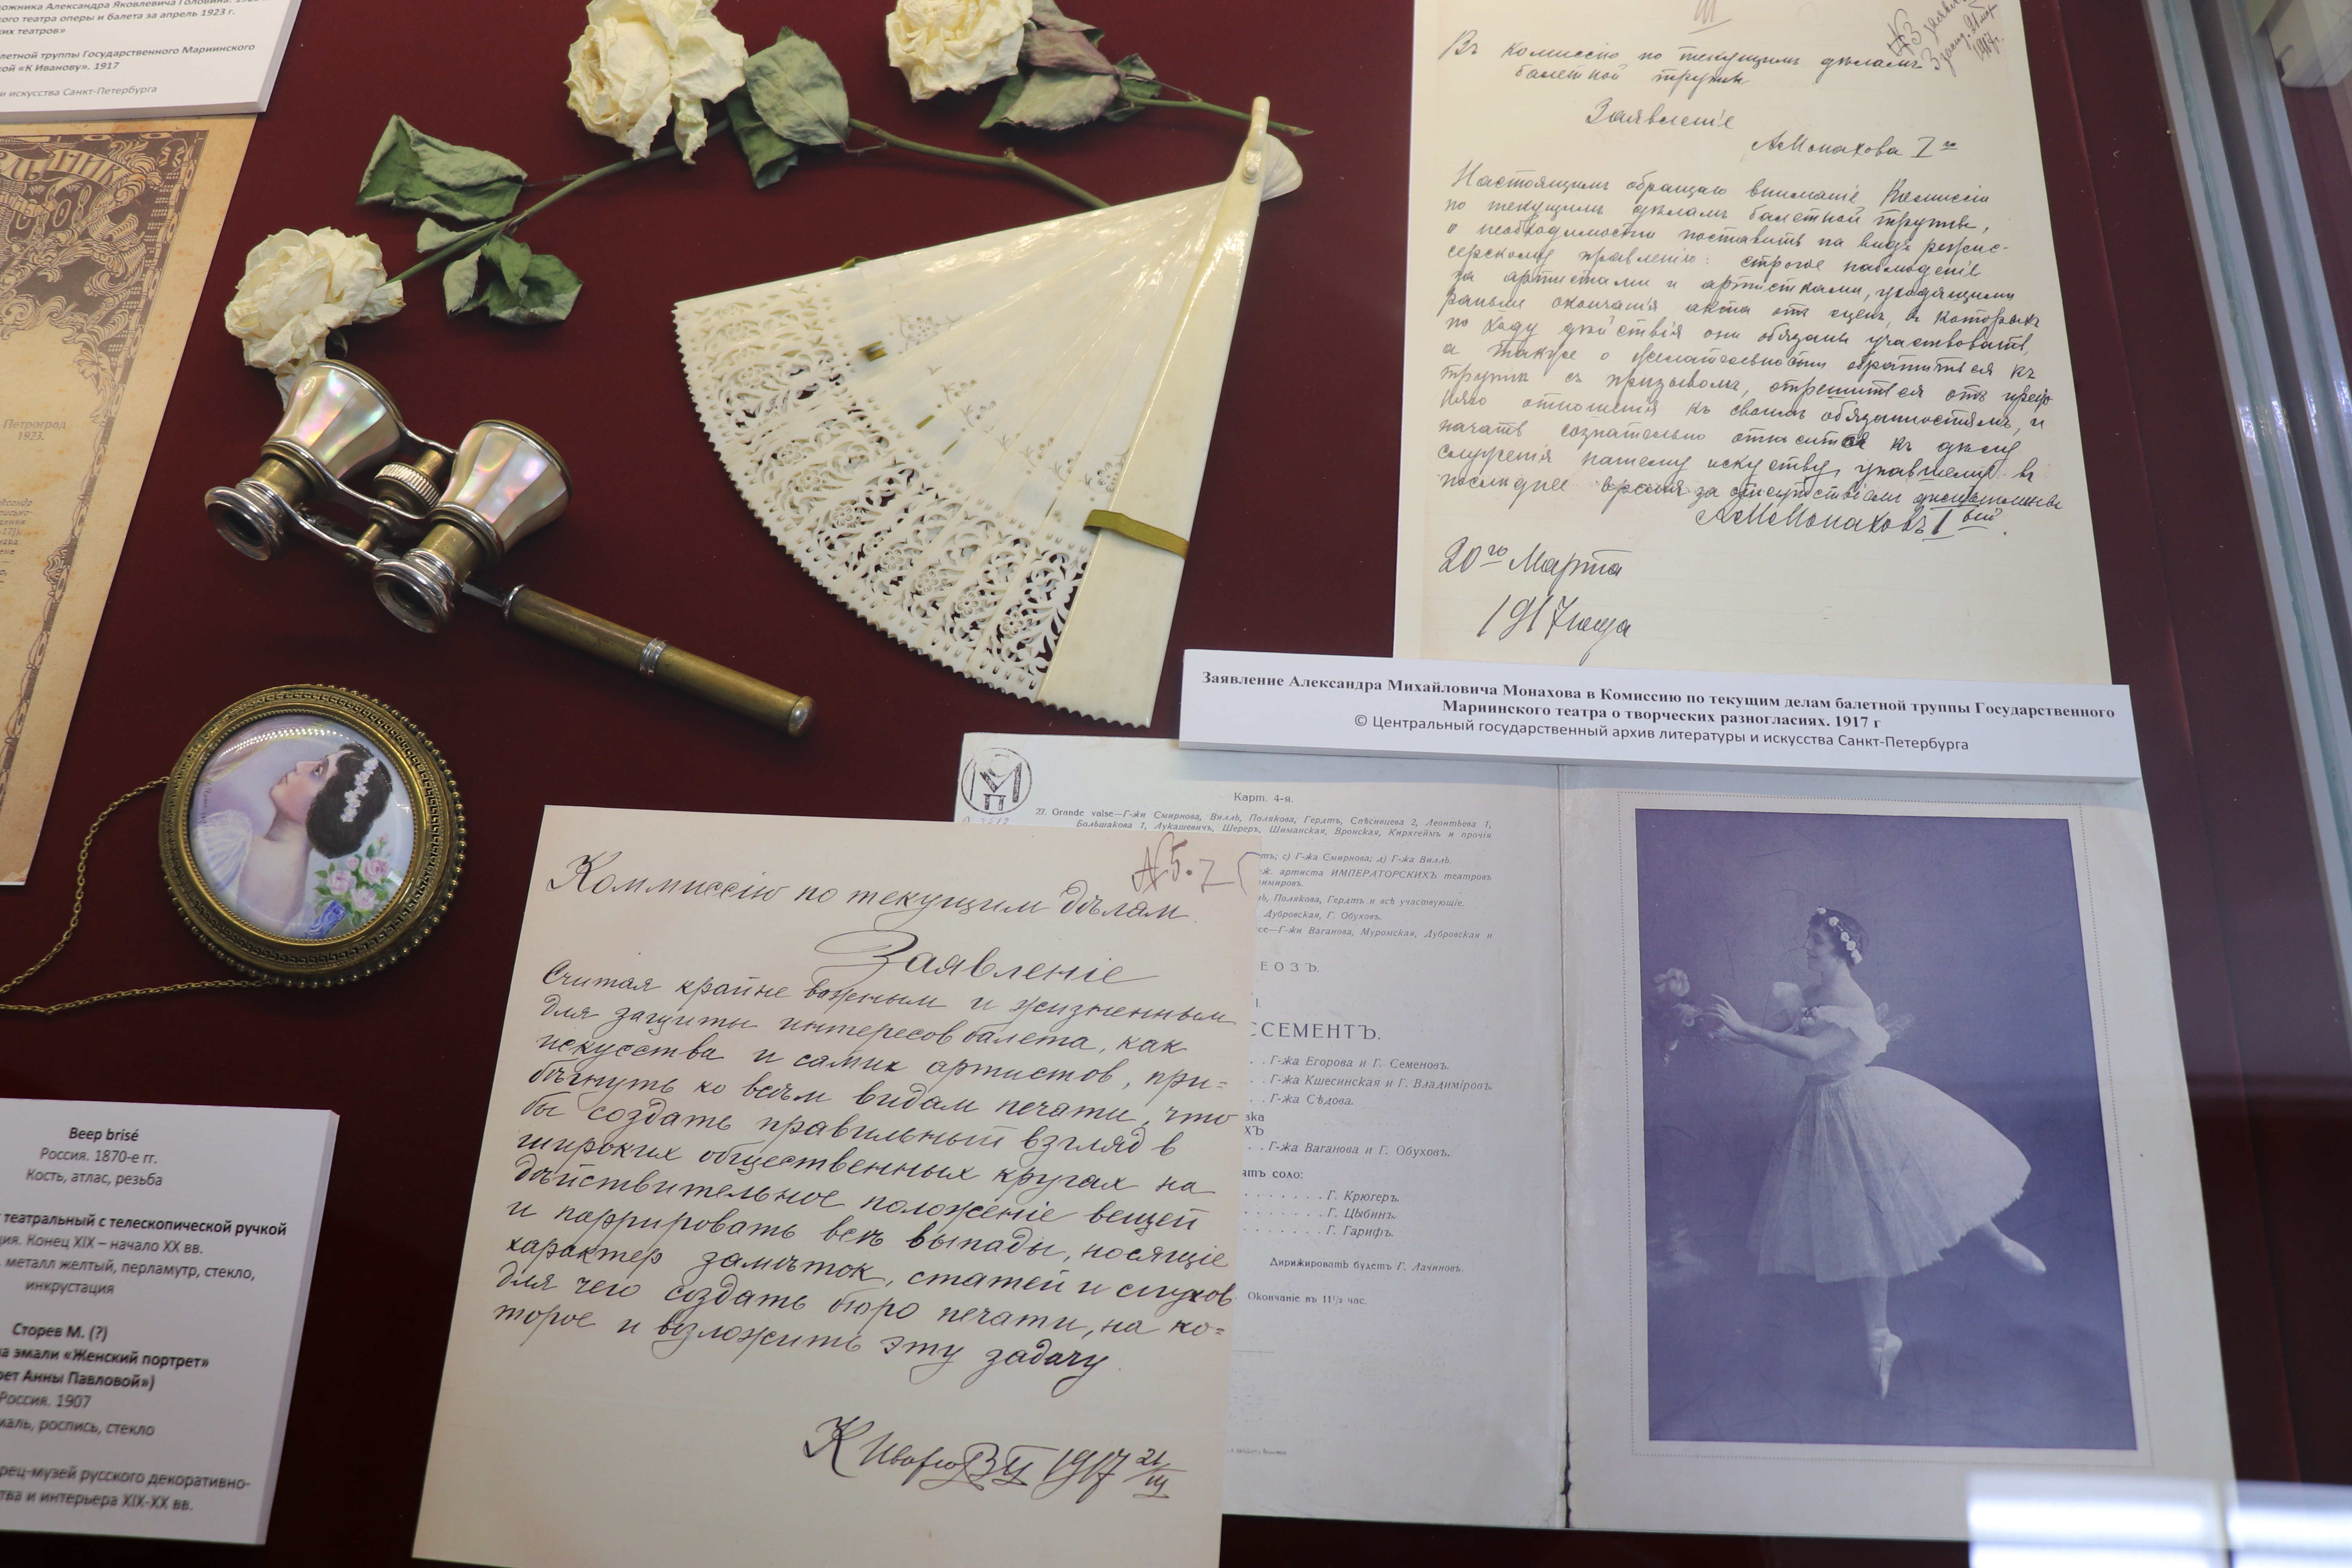 ожника Александра Яковлевича Головина.
кого театра оперы и балета за апрель 1923 г.
ких театров»
летной труппы Государственного Мариинского
кой «К Иванову». 1917
и искусства Санкт-Петербурга
Петроград
1923.
III
№3
Въ комиссію по текущимъ дѣламъ
балетной труппы
Заявленіе
А Монахова 1го
Настоящимъ обращаю вниманіе Комиссіи
по текущимъ дѣламъ балетной труппы,
о необходимости поставить на видъ режис-
серскому правленію: строгое наблюденіе
за артистами и артистками, уходящими
раньше окончанія акта отъ сценъ, въ которыхъ
по ходу дѣйствія они обязаны участвовать,
а также о желательности обратиться къ
труппѣ съ призывомъ, отрешится отъ
отношенія къ своимъ обязанностямъ, и
начать сознательно относится къ дѣлу
служенія нашему искуству, упавшему въ
последнее время за отсутствіемъ дисциплины
А М Монаховъ 1ый.
20го Марта
1917 года
Заявление Александра Михайловича Монахова в Комиссию по текущим делам балетной труппы Государственного
Мариинского театра о творческих разногласиях. 1917 г
© Центральный государственный архив литературы и искусства Санкт-Петербурга
Карт. 4-я.
27. Grande valse—Г-жи Смирнова, Вилль, Полякова, Гердтъ, Спѣсивцева 2, Леонтьева 1,
Большакова 1, Лукашевичъ, Шереръ, Шиманская, Вронская, Кирхгеймъ и прочія
тъ; с) Г-жа Смирнова; д) Г-жа Вилль.
ж. артиста ИМПЕРАТОРСКИХЪ театровъ
имировъ.
ь, Полякова, Гердтъ и всѣ участвующіе.
Дубровская, Г. Обуховъ.
се—Г-жи Ваганова, Муромская, Дубровская и
ЕОЗЪ.
ССЕМЕНТЪ.
Г-жа Егорова и Г. Семеновъ.
Г-жа Кшесинская и Г. Владиміровъ.
Г-жа Сѣдова.
ska
ХЪ
Г-жа Ваганова и Г. Обуховъ.
ятъ соло:
Г. Крюгеръ.
Г. Цыбинъ.
Г. Гарифъ.
Дирижировать будетъ Г. Лачиновъ.
Окончаніе въ 11½ час.
№5.
Коммиссію по текущим дѣлам.
Заявленіе
Считая крайне важным и жизненным
для защиты интересов балета, как
искусства и самих артистов, при=
бѣгнуть ко всѣм видам печати, что
бы создать правильный взгляд в
широких общественных кругах на
дѣйствительное положеніе вещей
и паррировать всѣ выпады, носящіе
характер замѣток, статей и слухов
для чего создать бюро печати, на ко=
торое и возложить эту задачу.
К Иванов 1917 21/III
Веер brisé
Россия. 1870-е гг.
Кость, атлас, резьба
театральный с телескопической ручкой
ция. Конец XIX – начало XX вв.
металл желтый, перламутр, стекло,
инкрустация
Сторев М. (?)
на эмали «Женский портрет»
рет Анны Павловой»)
Россия. 1907
маль, роспись, стекло
рец-музей русского декоративно-
тва и интерьера XIX-XX вв.